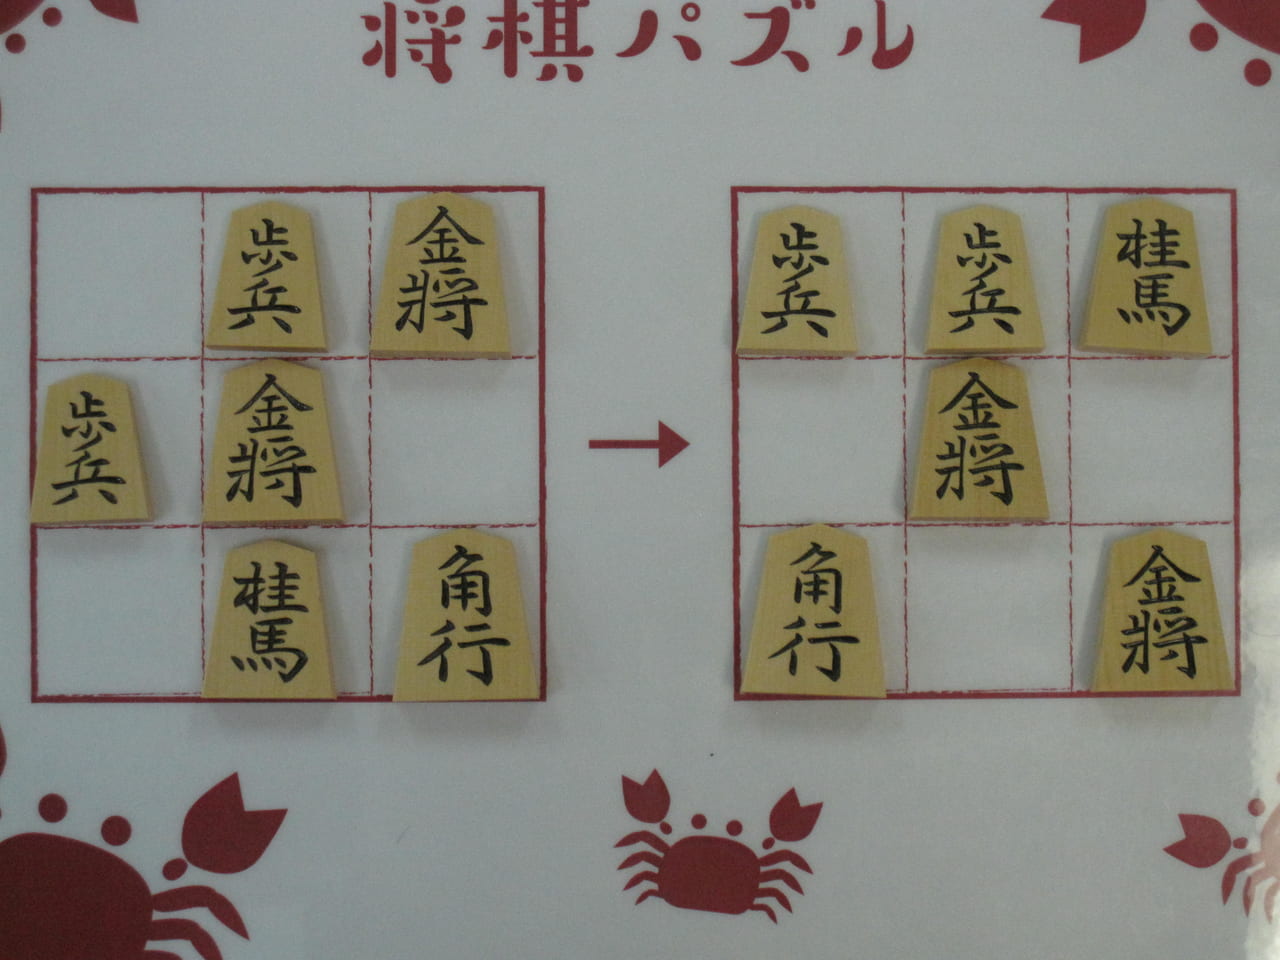 将棋パズル
歩兵 金将 歩兵 歩兵 桂馬
歩兵 金将 金将
桂馬 角行 角行 金将